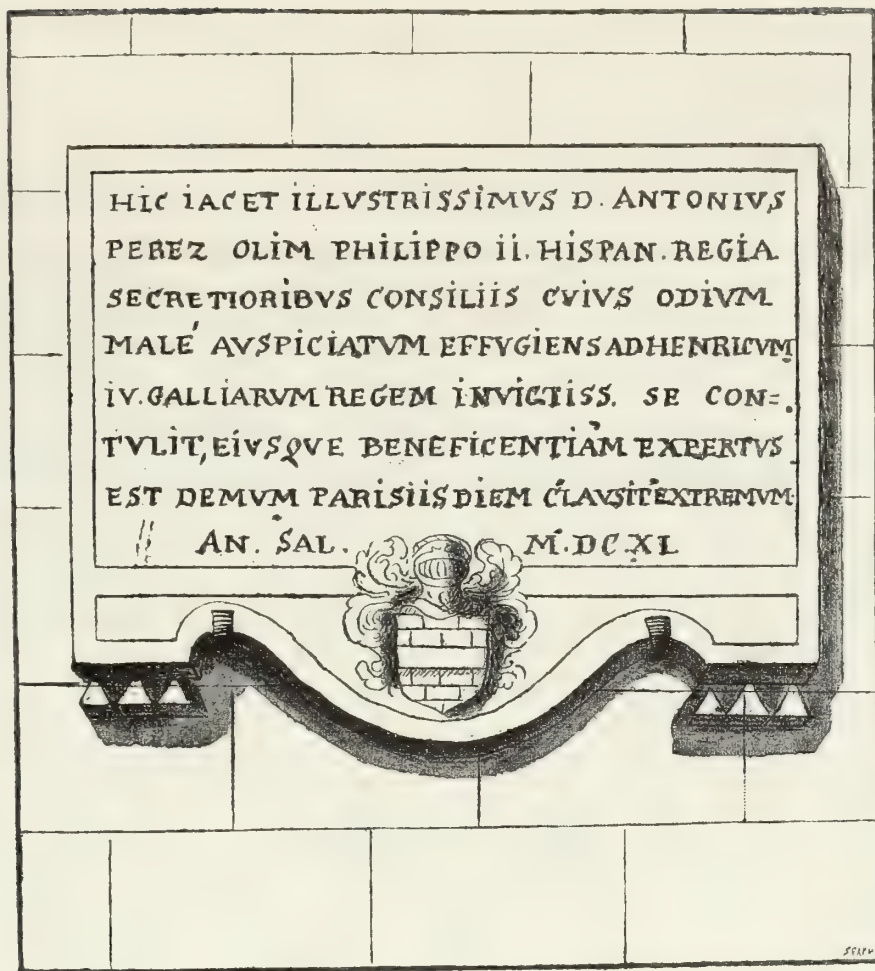 HIC IACET ILLVSTRISSIMVS D. ANTONIVS
PEREZ OLIM PHILIPPO ii. HISPAN. REGIA
SECRETIORIBVS CONSILIIS CVIVS ODIVM
MALE' AVSPICIATVM EFFVGIENS AD HENRICVM
IV. GALLIARVM REGEM INVICTISS. SE CON=
TVLIT, EIVSQVE BENEFICENTIAM EXPERTVS
EST DEMVM PARISIIS DIEM CLAVSIT EXTREMVM.
AN. SAL. M.DC.XI.